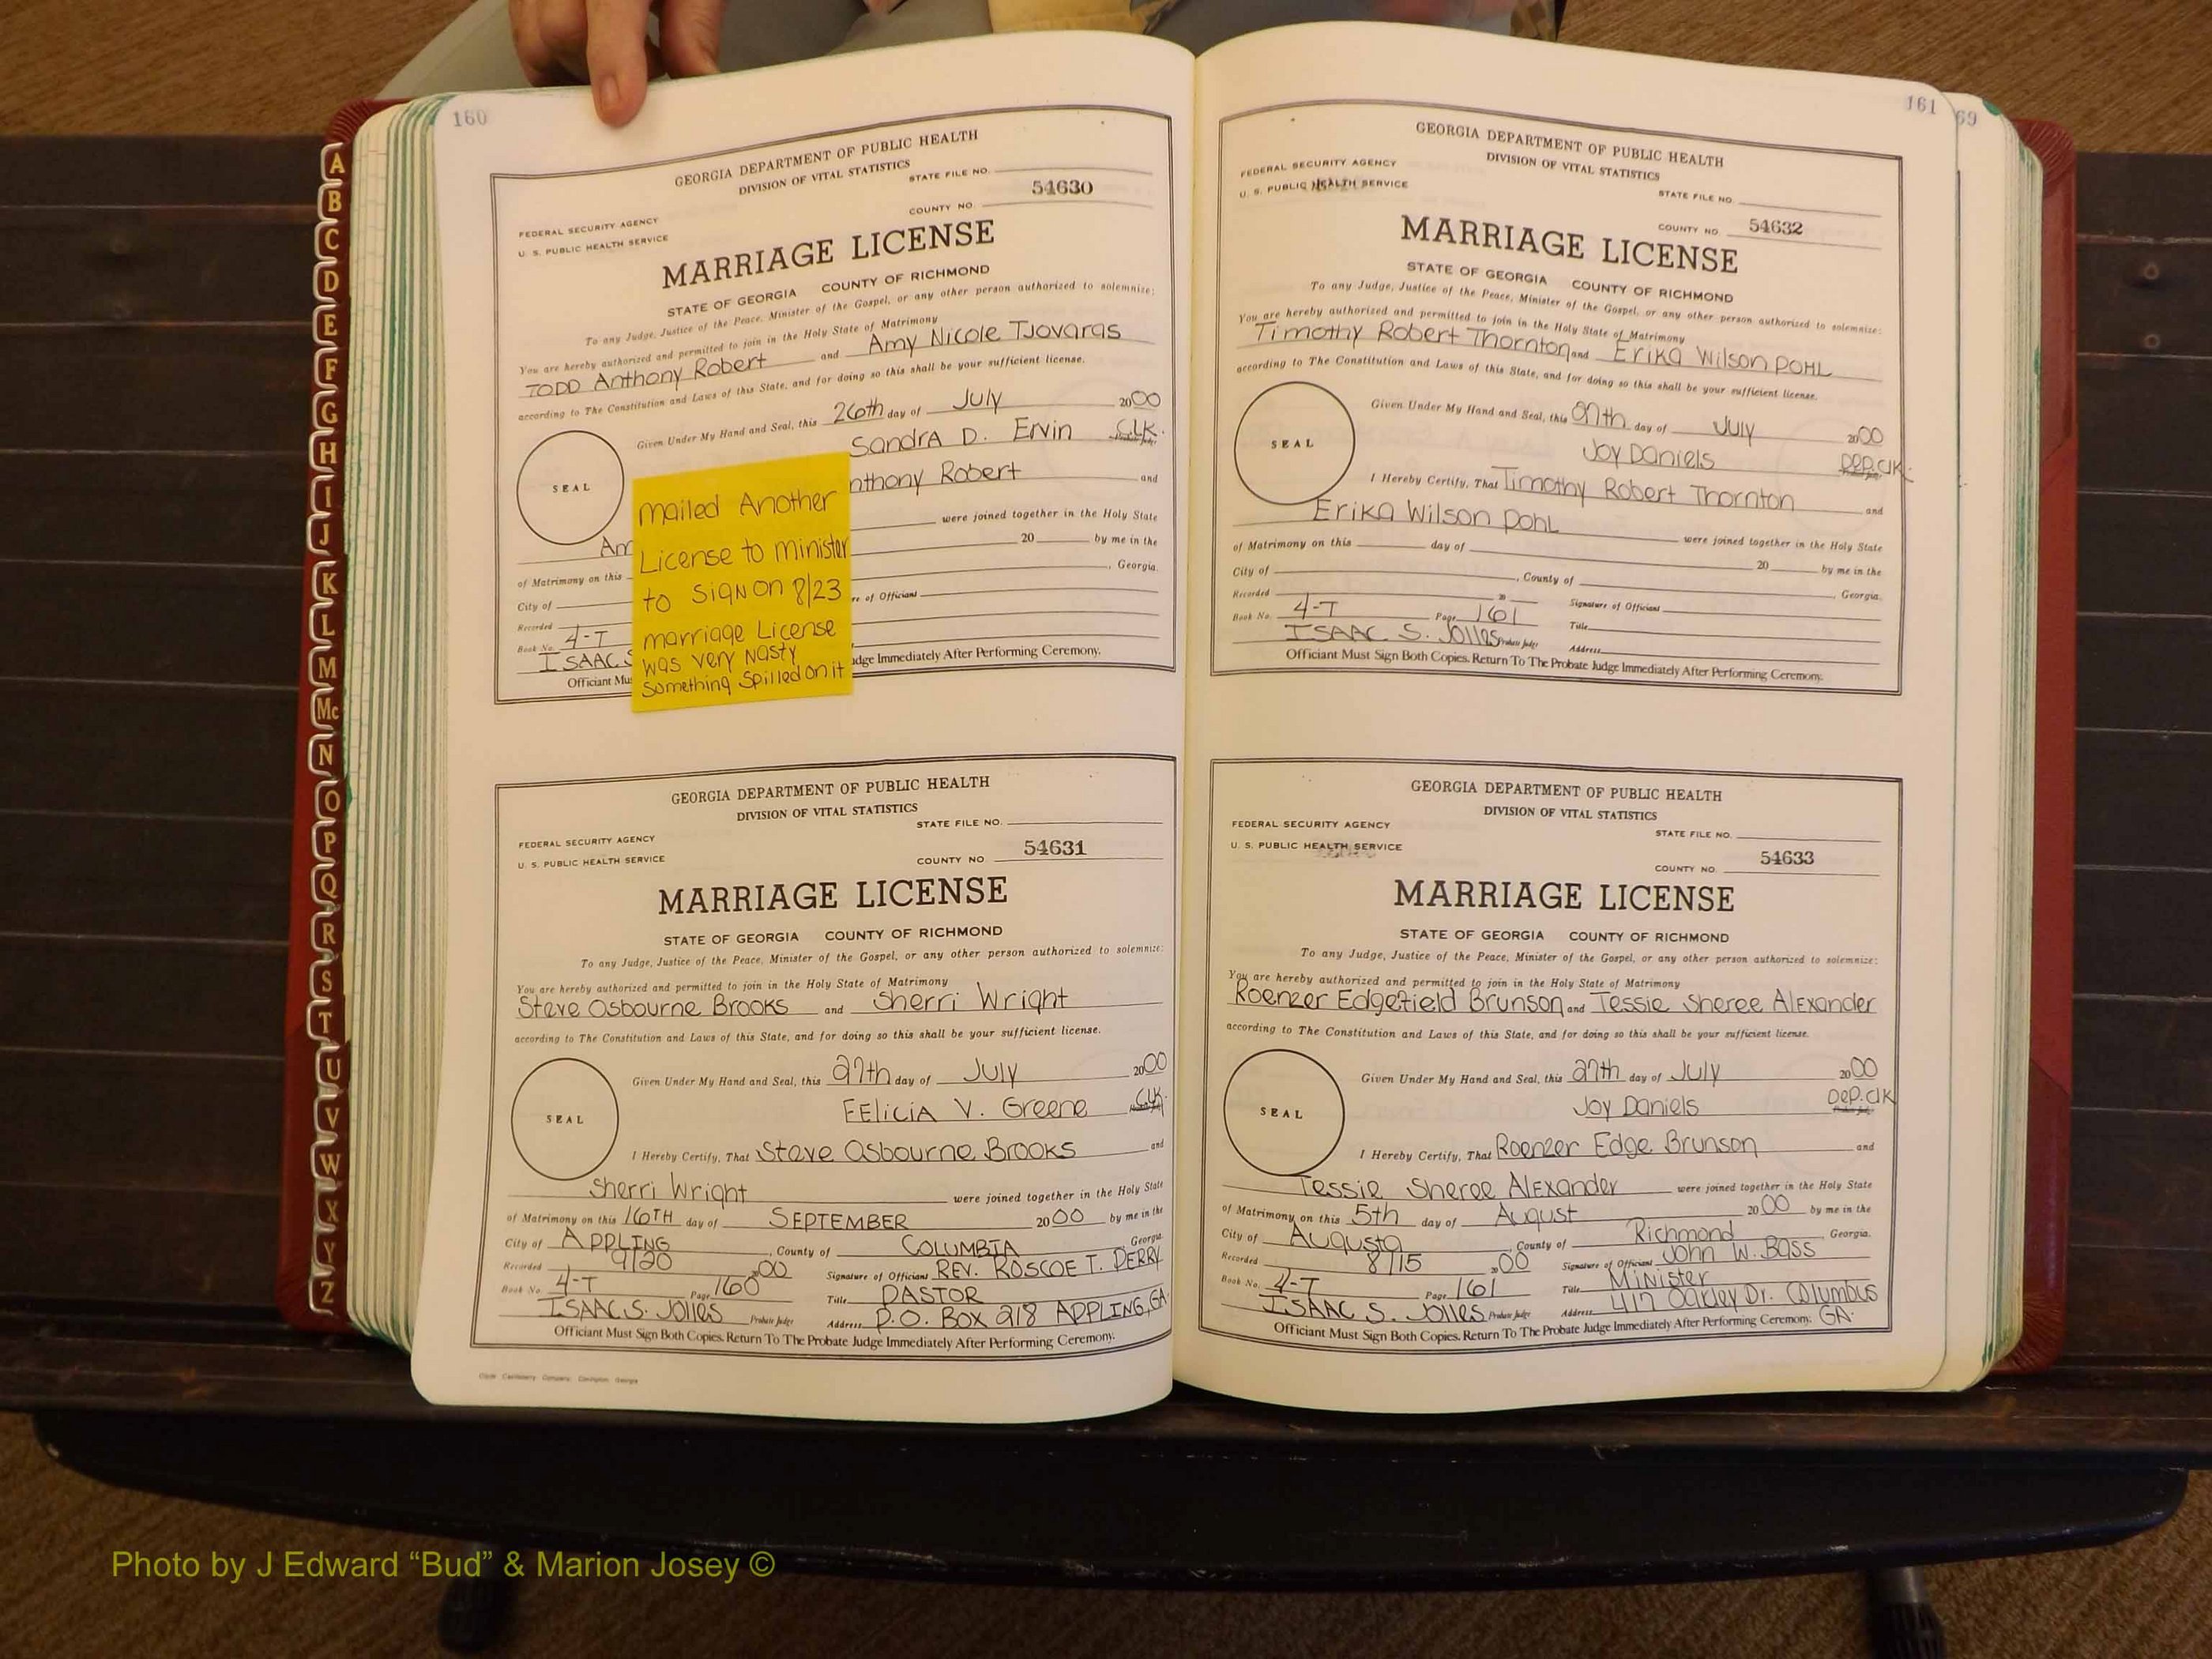 A
B
C
D
E
F
G
H
I
J
K
L
M
Mc
N
O
P
Q
R
S
T
U
V
W
X
Y
Z
160
GEORGIA DEPARTMENT OF PUBLIC HEALTH
DIVISION OF VITAL STATISTICS
STATE FILE NO.
54630
COUNTY NO.
FEDERAL SECURITY AGENCY
U. S. PUBLIC HEALTH SERVICE
MARRIAGE LICENSE
STATE OF GEORGIA COUNTY OF RICHMOND
To any Judge, Justice of the Peace, Minister of the Gospel, or any other person authorized to solemnize:
You are hereby authorized and permitted to join in the Holy State of Matrimony
TODD Anthony Robert and Amy Nicole Tjovaras
according to The Constitution and Laws of this State, and for doing so this shall be your sufficient license.
Given Under My Hand and Seal, this 26th day of July 2000
Sandra D. Ervin CLK.
SEAL
nthony Robert and
Am were joined together in the Holy State
of Matrimony on this 20 by me in the
City of Georgia.
Recorded re of Officiant
Book No. 4-T
ISAAC S
Officiant Mu dge Immediately After Performing Ceremony.
mailed Another
License to minister
to Sign on 8/23
marriage License
was very nasty
Something Spilled on it
GEORGIA DEPARTMENT OF PUBLIC HEALTH
DIVISION OF VITAL STATISTICS
STATE FILE NO.
54631
COUNTY NO
FEDERAL SECURITY AGENCY
U. S. PUBLIC HEALTH SERVICE
MARRIAGE LICENSE
STATE OF GEORGIA COUNTY OF RICHMOND
To any Judge, Justice of the Peace, Minister of the Gospel, or any other person authorized to solemnize:
You are hereby authorized and permitted to join in the Holy State of Matrimony
Steve Osbourne Brooks and Sherri Wright
according to The Constitution and Laws of this State, and for doing so this shall be your sufficient license.
Given Under My Hand and Seal, this 27th day of July 2000
EElicia V. Greene CLK.
SEAL
I Hereby Certify, That Steve Osbourne Brooks and
Sherri Wright were joined together in the Holy State
of Matrimony on this 16TH day of SEPTEMBER 2000 by me in the
City of APPLING, County of COLUMBIA, Georgia.
Recorded 9/20 2000 Signature of Officiant REV. ROSCOE T. PERRY
Book No. 4-T Page 160 Title PASTOR
ISAAC S. Jolles Probate Judge Address P.O. BOX 218 APPLING, GA
Officiant Must Sign Both Copies. Return To The Probate Judge Immediately After Performing Ceremony.
161
69
GEORGIA DEPARTMENT OF PUBLIC HEALTH
DIVISION OF VITAL STATISTICS
FEDERAL SECURITY AGENCY
U. S. PUBLIC HEALTH SERVICE
STATE FILE NO.
COUNTY NO. 54632
MARRIAGE LICENSE
STATE OF GEORGIA COUNTY OF RICHMOND
To any Judge, Justice of the Peace, Minister of the Gospel, or any other person authorized to solemnize:
You are hereby authorized and permitted to join in the Holy State of Matrimony
Timothy Robert Thornton and Erika Wilson POHL
according to The Constitution and Laws of this State, and for doing so this shall be your sufficient license.
Given Under My Hand and Seal, this 27th day of July 2000
Joy Daniels Dep. Clk.
SEAL
I Hereby Certify, That Timothy Robert Thornton and
Erika Wilson Pohl were joined together in the Holy State
of Matrimony on this day of 20 by me in the
City of , County of , Georgia.
Recorded 20 Signature of Officiant
Book No. 4-T Page 161 Title
ISAAC S. Jolles Probate Judge Address
Officiant Must Sign Both Copies. Return To The Probate Judge Immediately After Performing Ceremony.
GEORGIA DEPARTMENT OF PUBLIC HEALTH
DIVISION OF VITAL STATISTICS
FEDERAL SECURITY AGENCY
STATE FILE NO.
U. S. PUBLIC HEALTH SERVICE
54633
COUNTY NO.
MARRIAGE LICENSE
STATE OF GEORGIA COUNTY OF RICHMOND
To any Judge, Justice of the Peace, Minister of the Gospel, or any other person authorized to solemnize:
You are hereby authorized and permitted to join in the Holy State of Matrimony
Roenzer Edgefield Brunson and Tessie Sheree Alexander
according to The Constitution and Laws of this State, and for doing so this shall be your sufficient license.
Given Under My Hand and Seal, this 27th day of July 2000
Joy Daniels Dep. Clk
SEAL
I Hereby Certify, That Roenzer Edge Brunson and
Tessie Sheree Alexander were joined together in the Holy State
of Matrimony on this 5th day of August 2000 by me in the
City of Augusta, County of Richmond Georgia.
Recorded 8/15 2000 Signature of Officiant John W. Bass
Book No. 4-T Page 161 Title Minister
ISAAC S. Jolles Probate Judge Address 417 Oakley Dr. Columbus
Officiant Must Sign Both Copies. Return To The Probate Judge Immediately After Performing Ceremony. GA.
Photo by J Edward “Bud” & Marion Josey ©